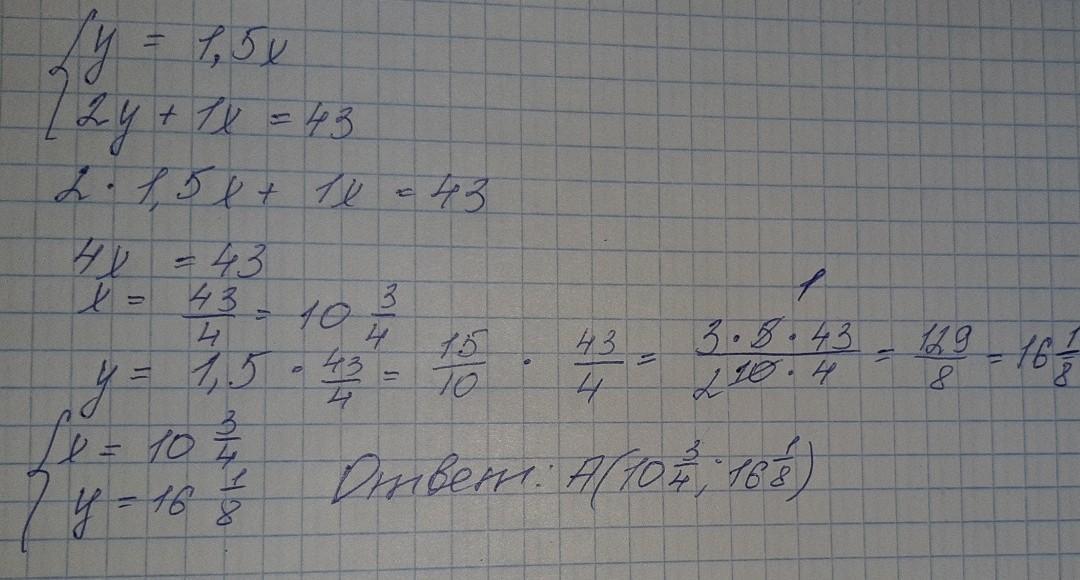 {y = 1,5x
2y + 1x = 43
2 · 1,5x + 1x = 43
4x = 43
x = 43/4 = 10 3/4
y = 1,5 · 43/4 = 15/10 · 43/4 = 3·5·43/2 10·4 1 = 129/8 = 16 1/8
{x = 10 3/4
y = 16 1/8
Ответ: A(10 3/4; 16 1/8)